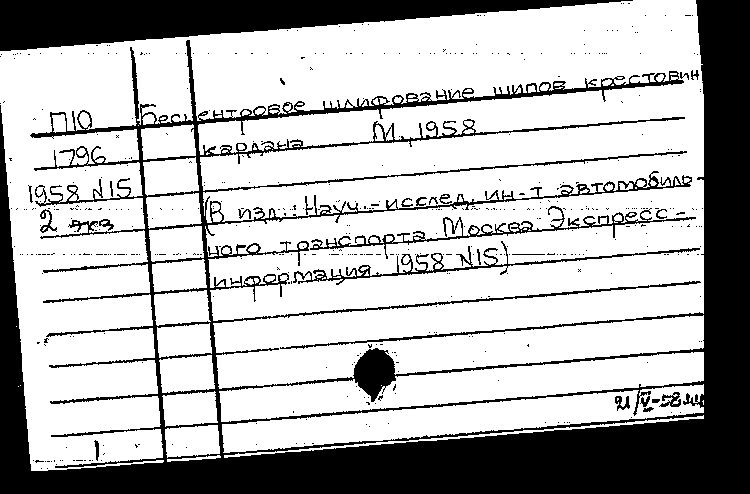 П10
1796
1958 N15
2 экз
Бесцентровое шлифование шипов крестовин
кардана М., 1958
(В изд.: Науч.-исслед. ин-т автомобиль-
ного транспорта. Москва. Экспресс-
информация. 1958 N15)
21/V-58
1